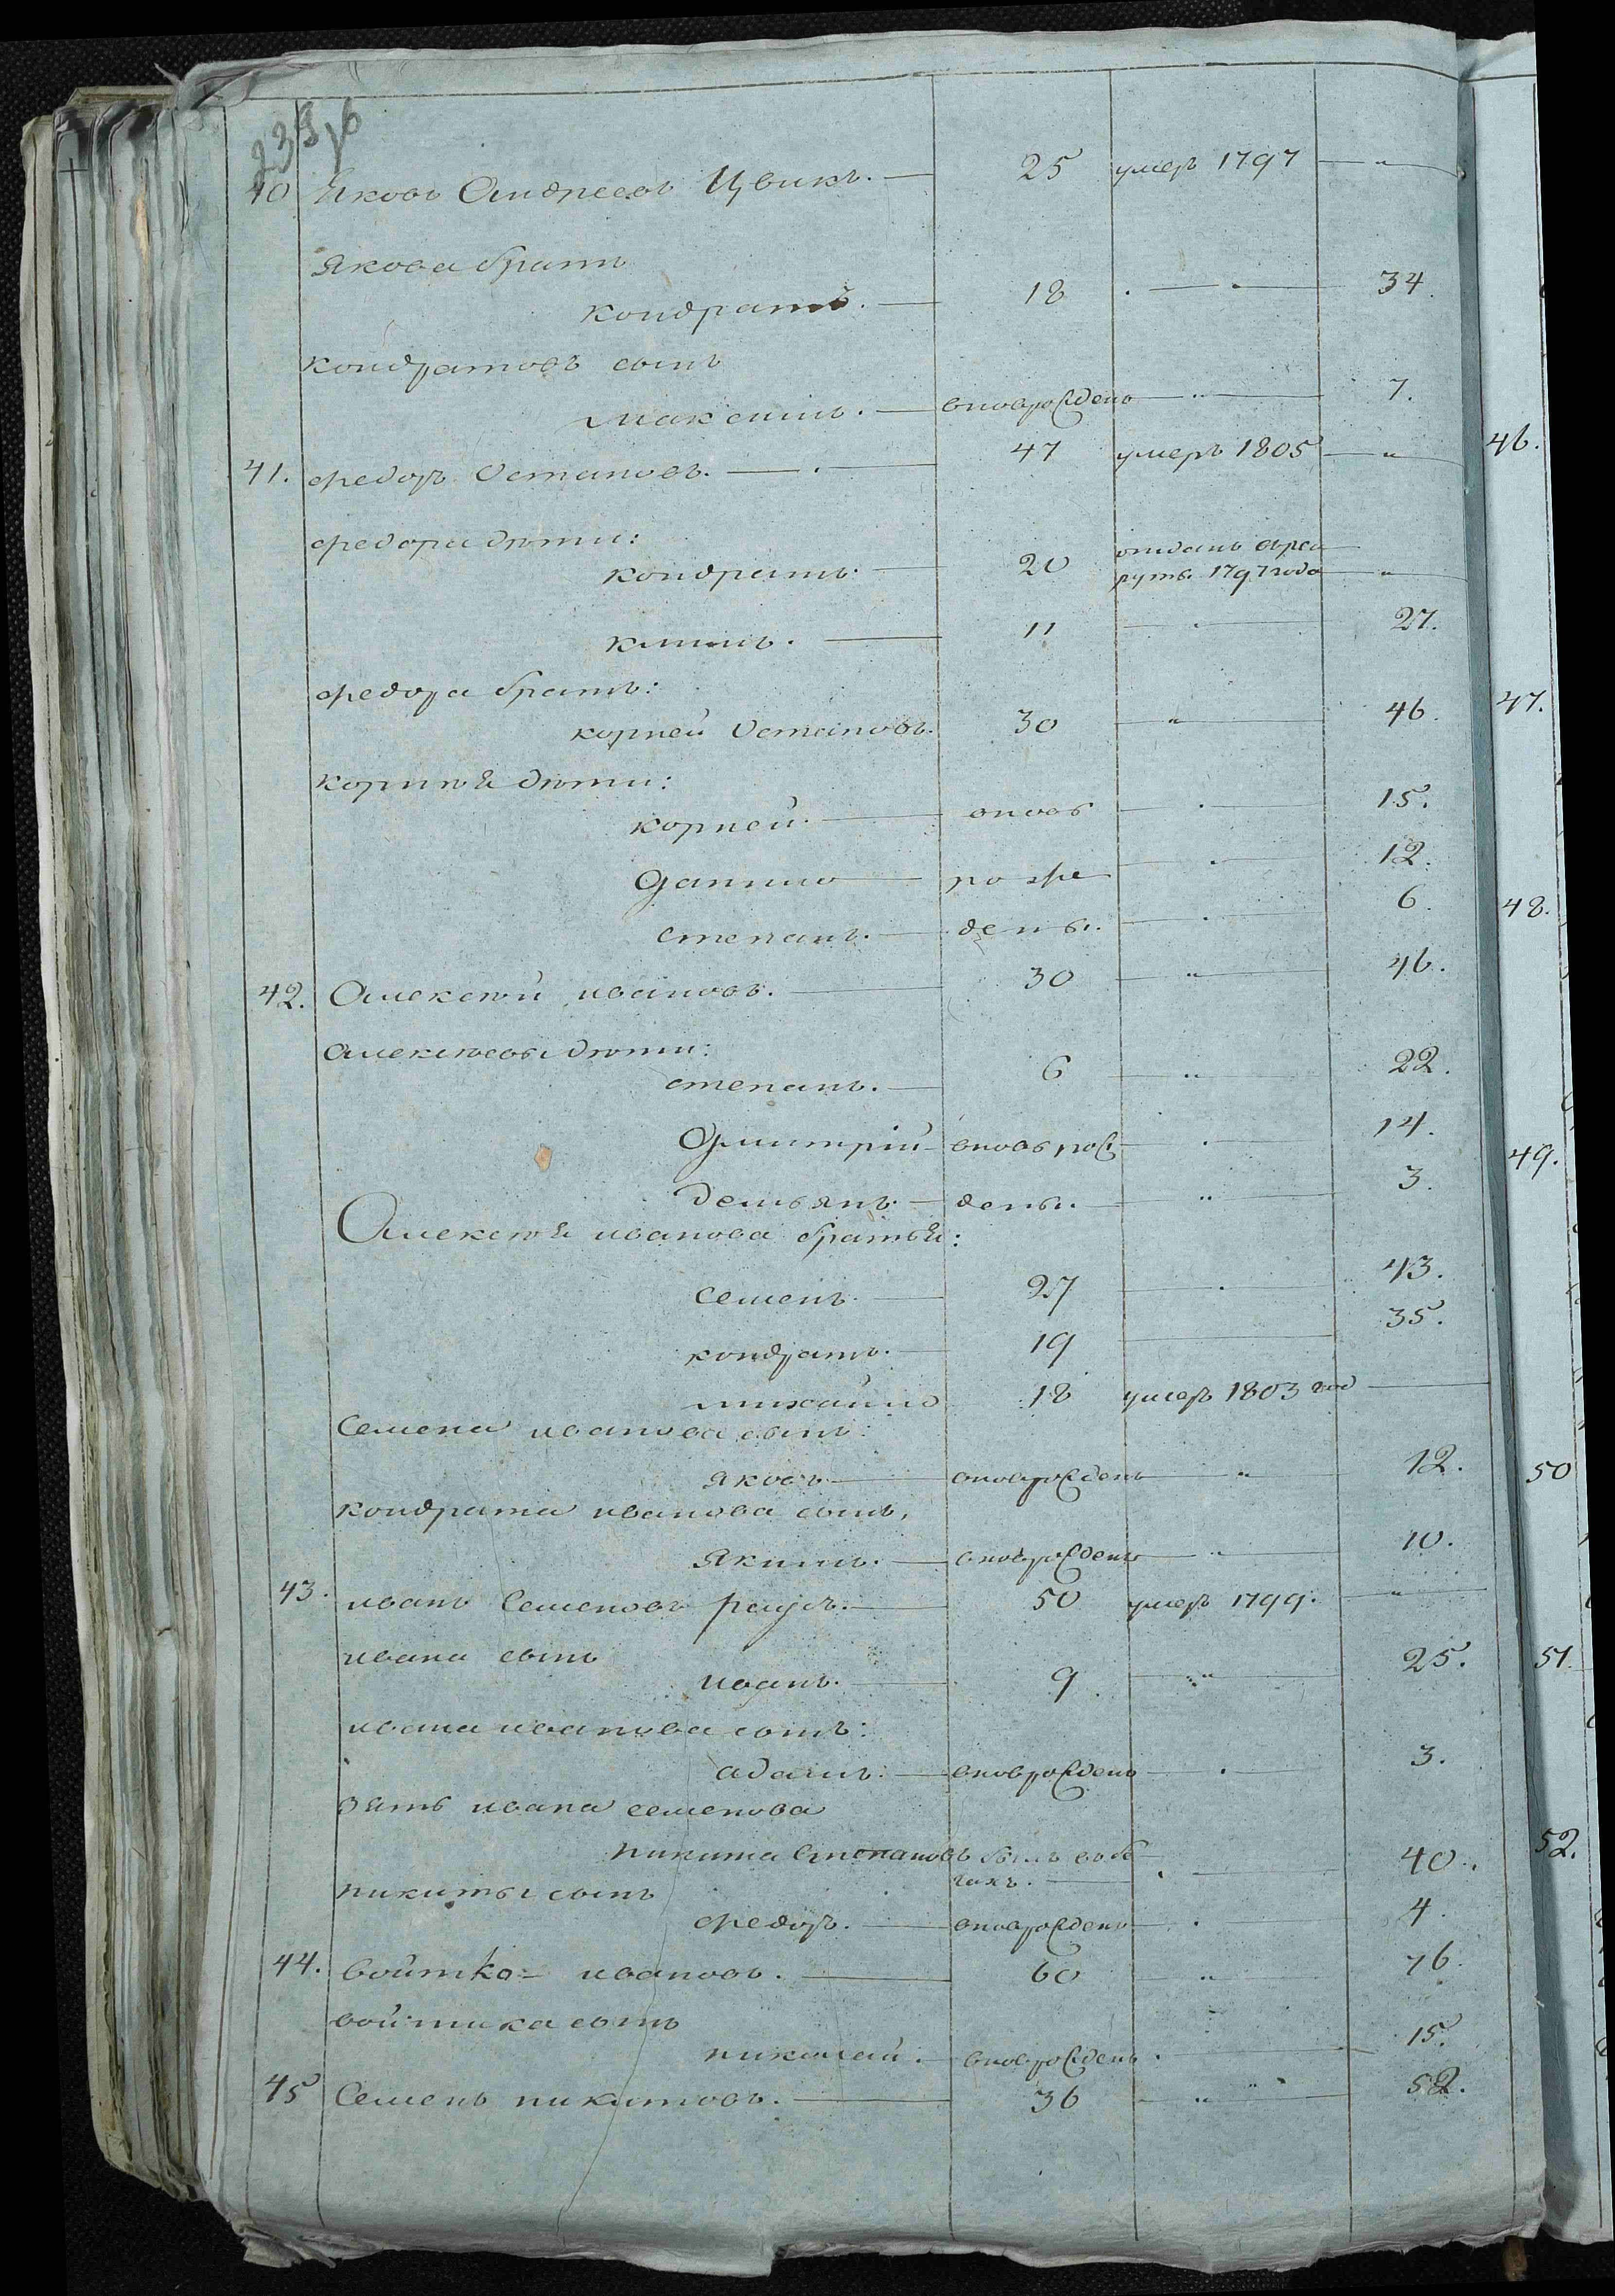 239/6
40 Яковъ Андреевъ Цвикъ. — 25 умеръ 1797 — „
Якова братъ
Кондратъ. — 18 — 34.
Кондратовъ сынъ
Максимъ. — вноврожденъ — „ — 7.
41. Федоръ Остаповъ. — 47 умеръ 1805 — „
46.
Федора дѣти:
Кондратъ. — 20 отданъ врек
рутъ 1797 года — „
Климъ. — 11 — 27.
Федора братъ:
Корней Остаповъ. 30 — „ — 46.
47.
Корнѣя дѣти:
Корней. — вновь — 15.
Данило — рожде — 12.
Степанъ. — дены. — 6.
48.
42. Алексѣй ивановъ. — 30 — „ — 46.
Алексѣевы дѣти:
Степанъ. — 6 — „ — 22.
Дмитрій — вновь рож — 14.
49.
Демьянъ. — дены. — „ — 3.
Алексѣя иванова братья:
Семенъ. — 27 — 43.
Кондратъ. — 19 — 35.
михайло 18 умеръ 1803 год —
Семена иванова сынъ:
Яковъ — вноврожденъ — „ — 12.
50
Кондрата иванова сынъ,
Якимъ. — вноврожденъ — „ — 10.
43. иванъ Семеновъ — 50 умеръ 1799. — „
ивана сынъ
иванъ. — 9 — „ — 25.
51.
ивана иванова сынъ:
адамъ. — вноврожденъ — 3.
зять ивана семенова
Никита Степановъ былъ вобѣ
гахъ. — 40.
52.
Никиты сынъ
Федоръ. — вноврожденъ — 4.
44. Войтко — ивановъ. — 60 — „ — 76.
Войтика сынъ
Николай. — вноврожденъ. — 15.
45 Семенъ никитовъ. — 36 — „ — 52.